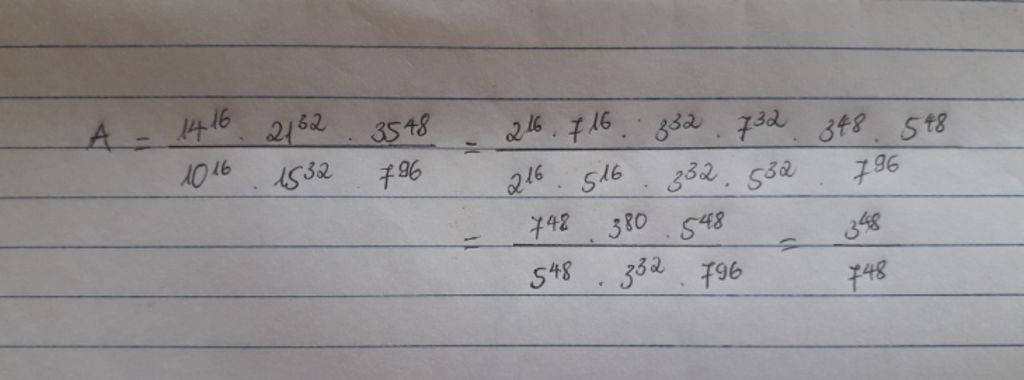 A = \frac{14^{16} \cdot 21^{32} \cdot 35^{48}}{10^{16} \cdot 15^{32} \cdot 7^{96}} = \frac{2^{16} \cdot 7^{16} \cdot 3^{32} \cdot 7^{32} \cdot 3^{48} \cdot 5^{48}}{2^{16} \cdot 5^{16} \cdot 3^{32} \cdot 5^{32} \cdot 7^{96}}
= \frac{7^{48} \cdot 3^{80} \cdot 5^{48}}{5^{48} \cdot 3^{32} \cdot 7^{96}} = \frac{3^{48}}{7^{48}}